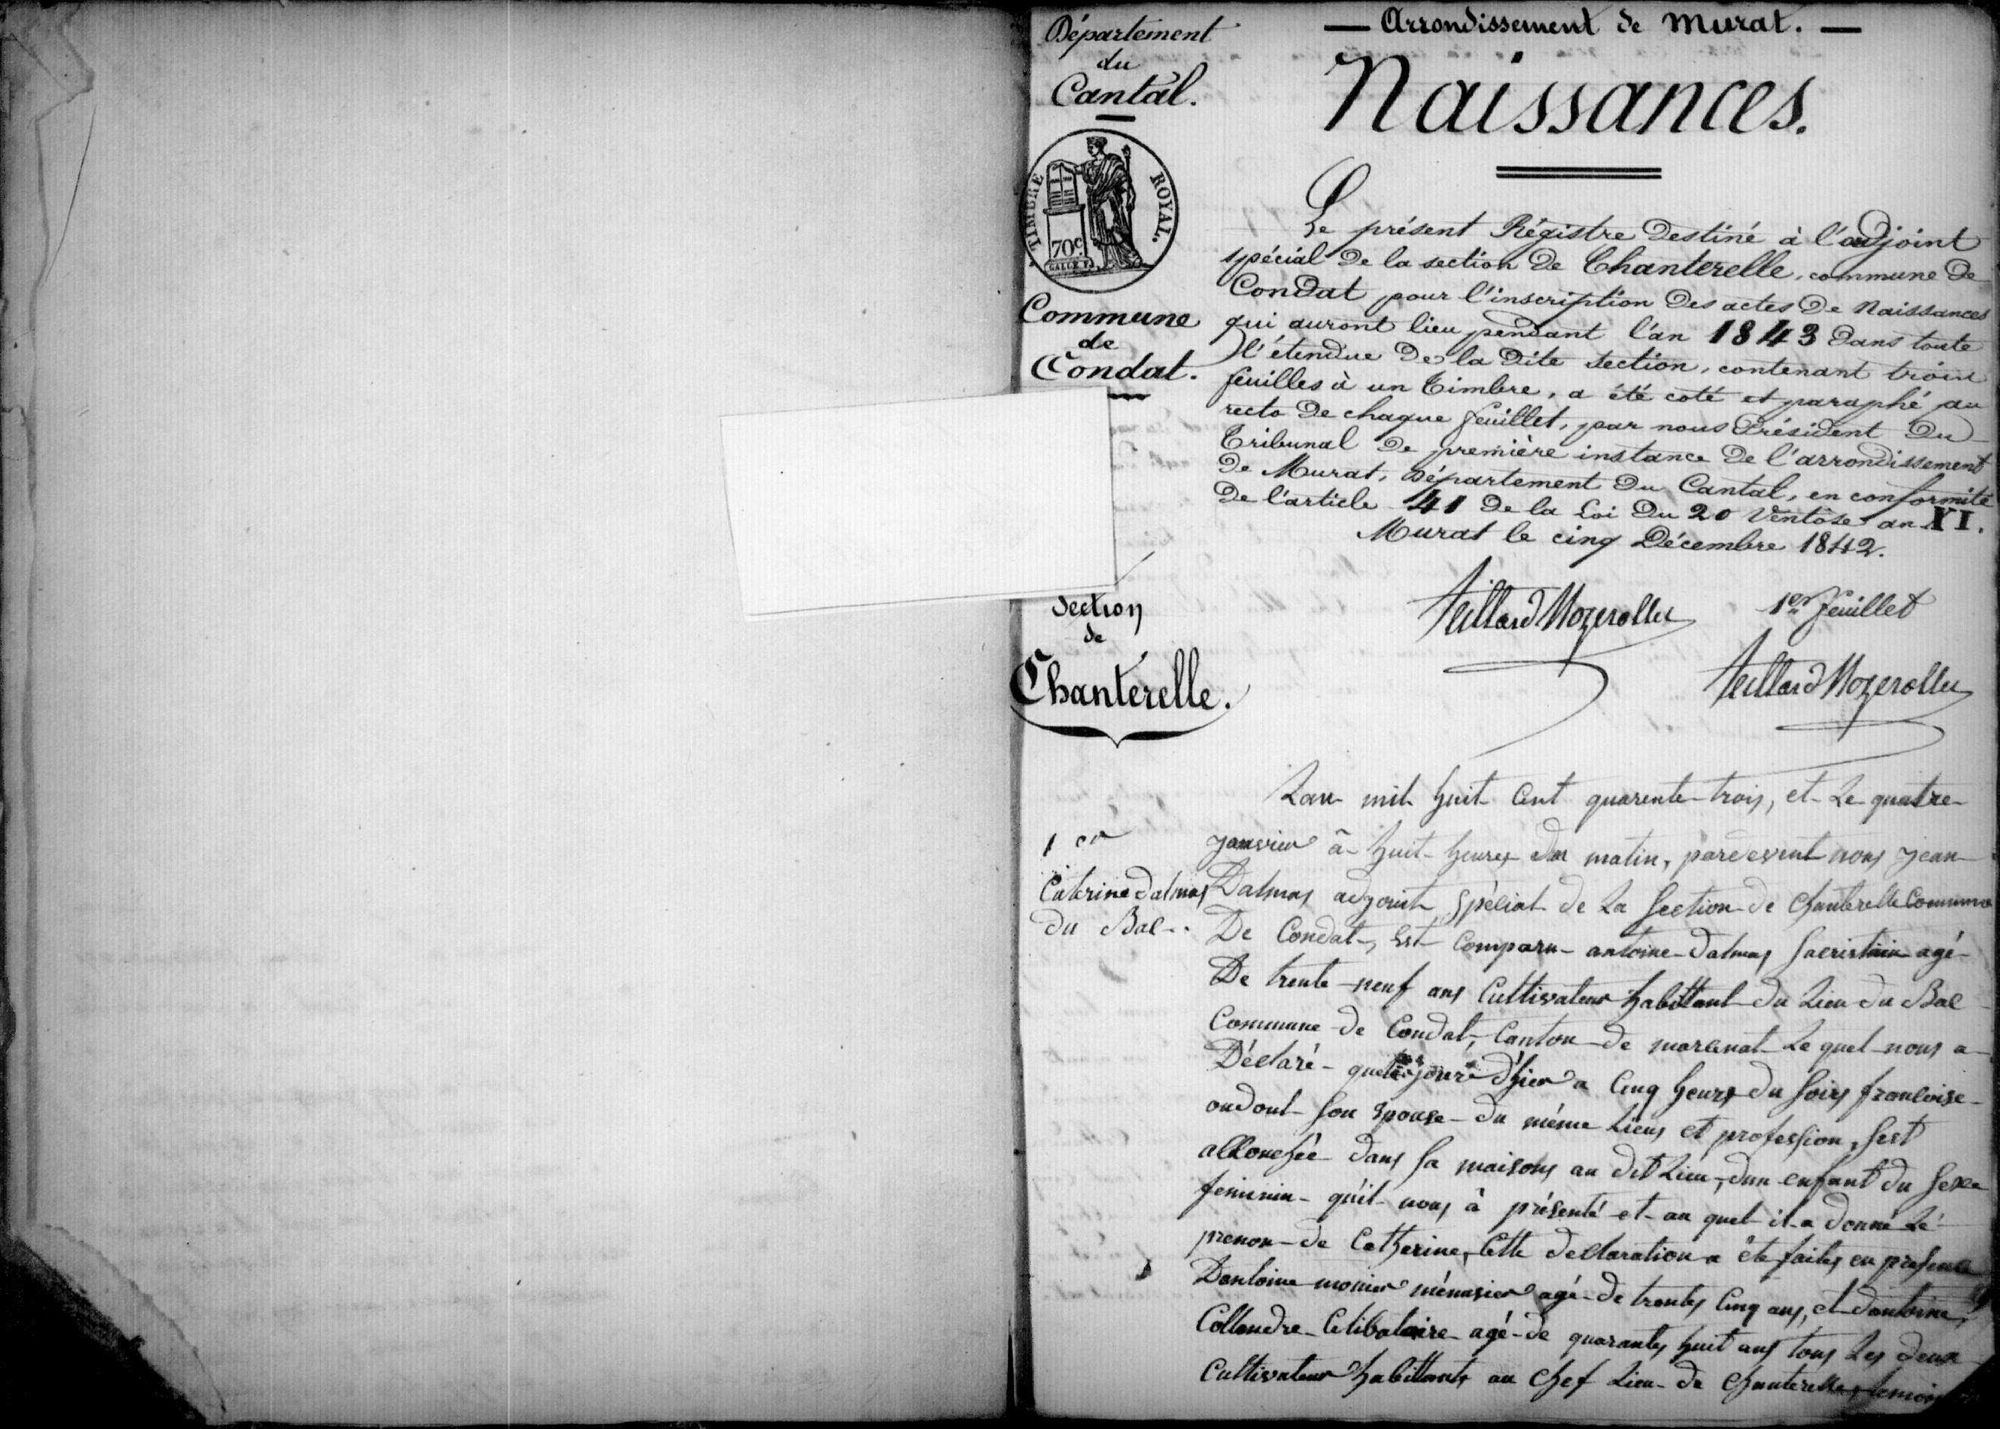 Département
du
Cantal.
TIMBRE ROYAL.
70c
Commune
de
Condat.
Section
de
Chanterelle.
— Arrondissement de Murat. —
Naissances.
Le présent Régistre destiné à l'adjoint
spécial de la section de Chanterelle, commune de
Condat pour l'inscription des actes de Naissances
qui auront lieu pendant l'an 1843 dans toute
l'étendue de la dite section, contenant trois
feuilles à un timbre, a été coté et paraphé au
recto de chaque feuillet, par nous Président du
Tribunal de première instance de l'arrondissement
de Murat, département du Cantal, en conformité
de l'article 41 de la Loi du 20 Ventôse an XI.
Murat le cinq Décembre 1842.
Teillard Nozerolles
1er feuillet
Teillard Nozerolles
1er
Caterine dalmas
du Bac.
Lan mil huit Cent quarente trois, et Le quatre
janvier à huit heures du matin, pardevent nous jean
Dalmas adjoint Spécial de La Section de Chanterelle Commune
De Condat, Est Comparu antoine dalmas Sacristain agé
De trente neuf ans Cultivateur habittant du Lieu du Bac
Commune de Condat, Canton de marcenat Le quel nous a
Déclaré que jour d'hier a Cinq heurs du Soirs francoise
oudout Son Epouse du même Lieus et profession, Sest
accouchée dans Sa maisons au dit Lieu, dun enfant du Sexe
feminin quil nous à présenté et au quel il a donné Lé
prenon de Catherine, Cette declaration a été faites en présence
Dantoine monier ménusier agé de trentes Cinq ans, et dantoine
Collandre Celibataire agé de quarantes huit ans tous Les deux
Cultivateur habittants au Chef Lieu de Chanterelle